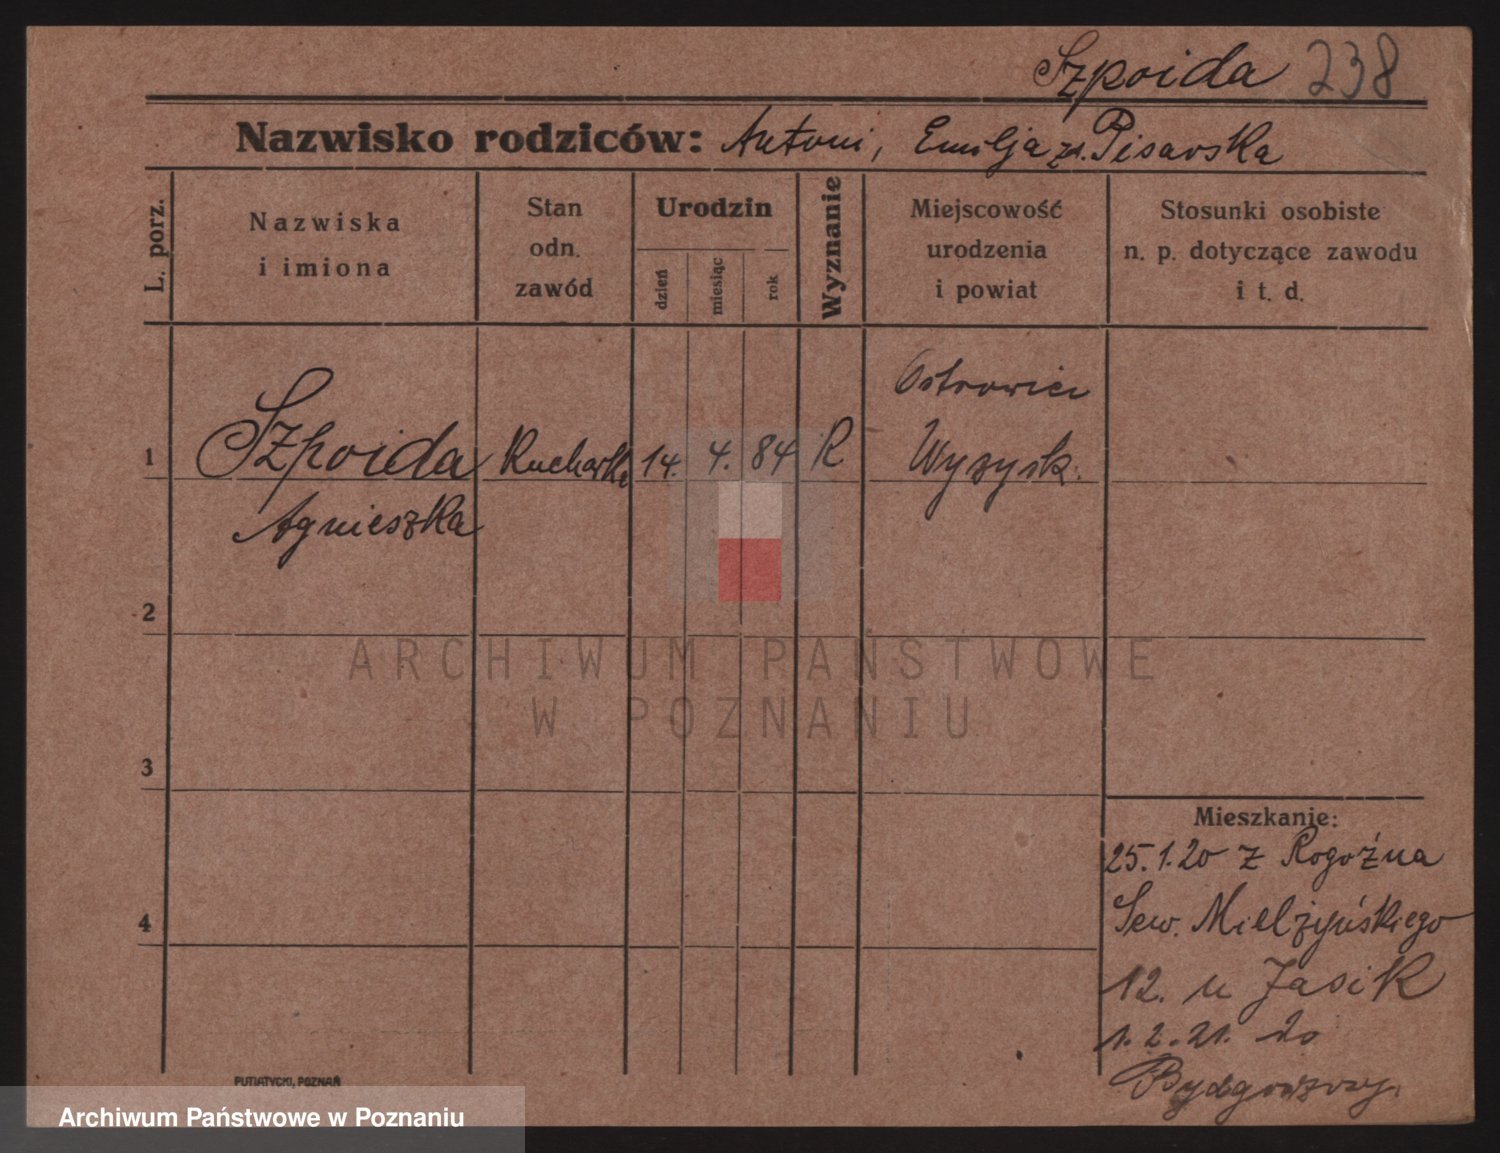 Szpoida 238
Nazwisko rodziców: Antoni, Emilja zd. Pisarska
L. porz.
Nazwiska
i imiona
Stan
odn.
zawód
Urodzin
dzień
miesiąc
rok
Wyznanie
Miejscowość
urodzenia
i powiat
Stosunki osobiste
n. p. dotyczące zawodu
i t. d.
Ostrowiec
1 Szpoida Kucharka 14. 4. 84 R Wyrzysk.
Agnieszka
2
ARCHIWUM PAŃSTWOWE
W POZNANIU
3
Mieszkanie:
25.1.20 z Rogoźna
4 Sew. Mielżyńskiego
12. u Jasik
1.2.21. do
Bydgoszczy.
PUTIATYCKI, POZNAŃ
Archiwum Państwowe w Poznaniu